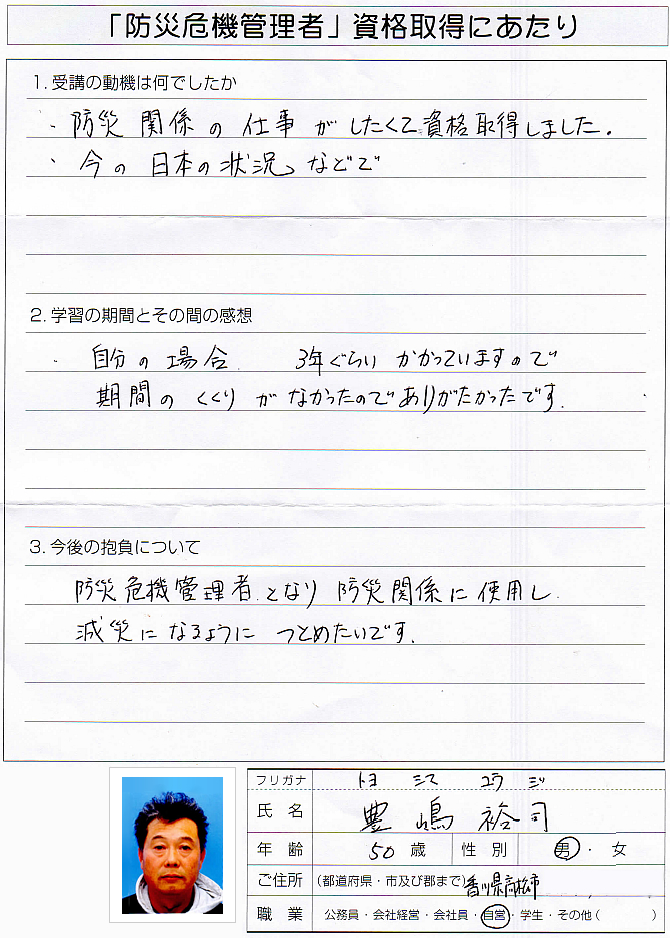 「防災危機管理者」資格取得にあたり
1. 受講の動機は何でしたか
・防災関係の仕事がしたくて資格取得しました。
・今の日本の状況などで
2. 学習の期間とその間の感想
・自分の場合. 3年ぐらいかかっていますので
期間のくくりがなかったのでありがたかったです.
3. 今後の抱負について
防災危機管理者.となり防災関係に使用し.
減災になるようにつとめたいです.
フリガナ トヨ シマ ユウ ジ
氏 名 豊嶋裕司
年 齢 50 歳 性 別 男 ・ 女
ご住所 (都道府県・市及び郡まで) 香川県高松市
職 業 公務員・会社経営・会社員・自営・学生・その他 ( )